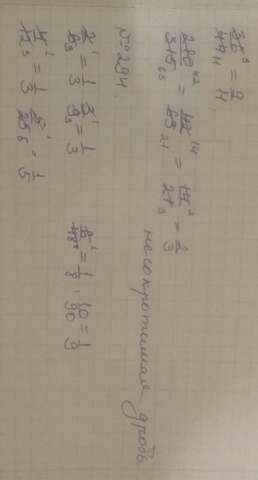 36/44 = 9/11
210/315 = 42/63 = 14/21 = 2/3 несократимая дробь
№294.
2/6 = 1/3 3/9 = 1/3 1/8 , 10/30 = 1/3
4/12 = 1/3 5/25 = 1/5